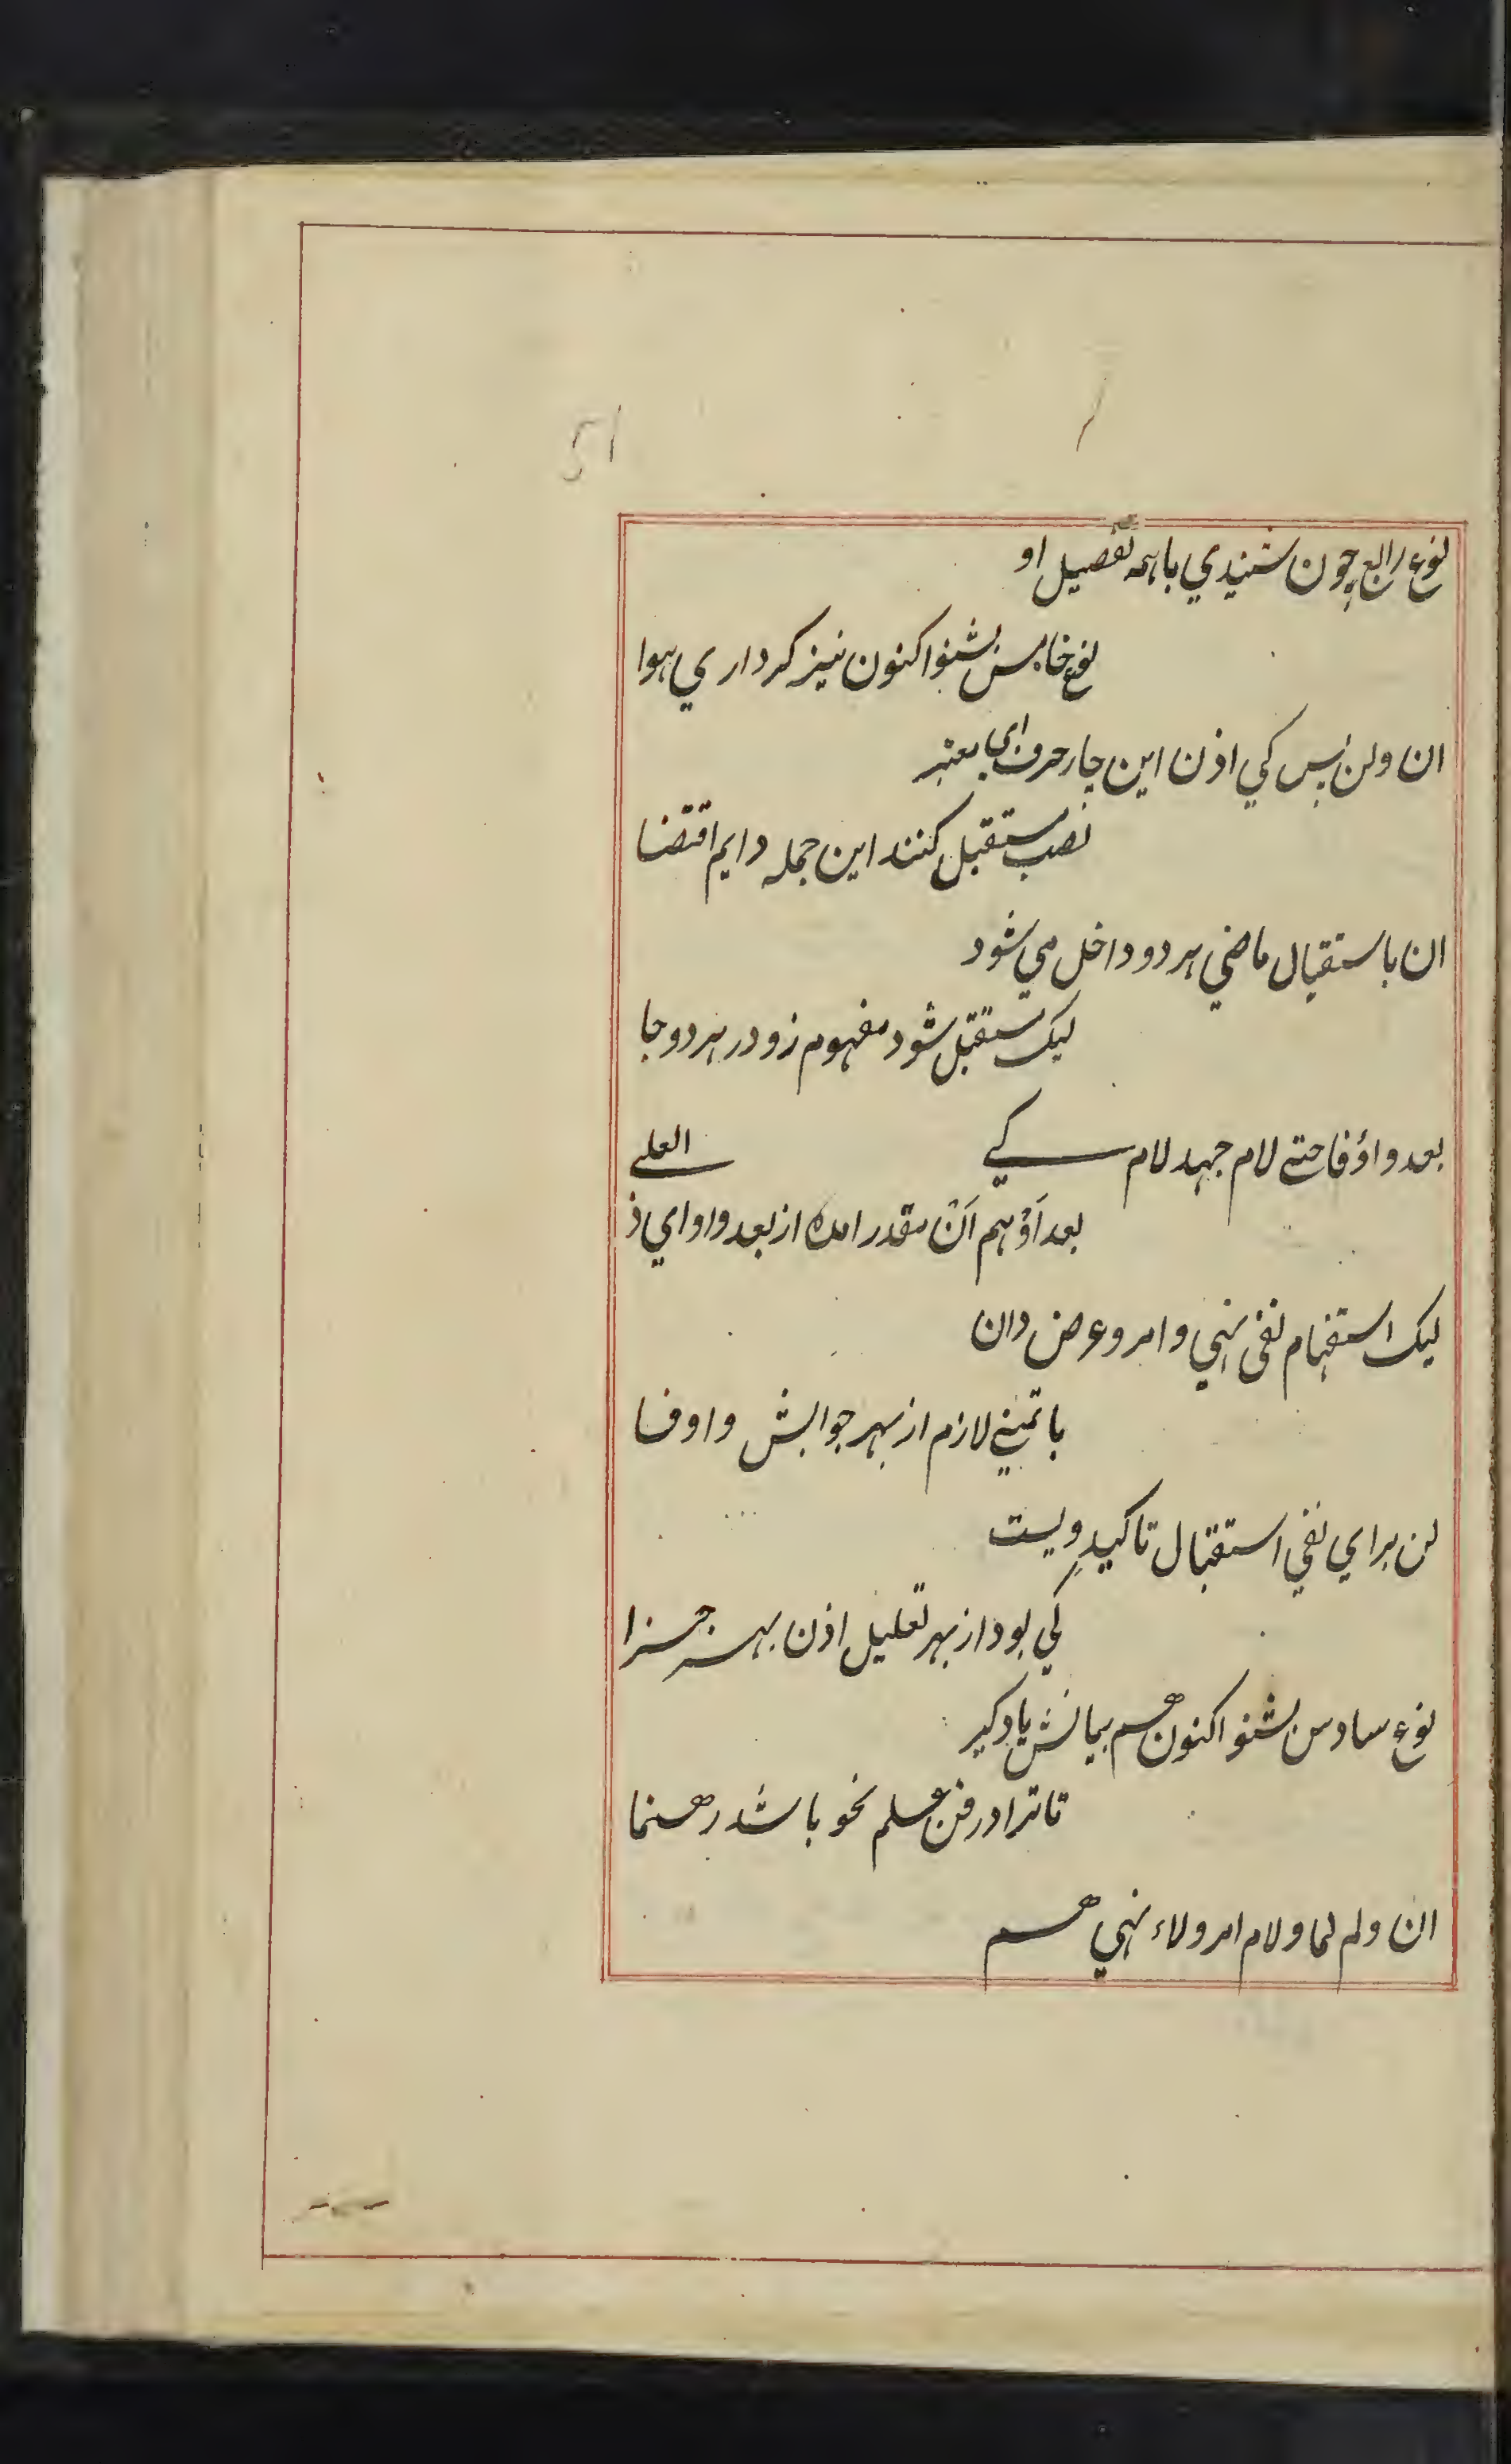 51
نوع رابع چون شنیدي باهمه تفصیل او
نوع خامس بشنو اکنون نیز کرداري هوا
ان ولن پس کي اذن این چار حرف اي معتبر
نصب مستقبل کنند این جمله دایم اقتضا
ان باستقبال ماضي هر دو داخل مي شود
لیک مستقبل شود مفهوم زو در هر دو جا
بعد واؤ فا حتے لام جهد لام کے
العلے
بعد اَوْ هم اَنْ مقدر امده از بعد واو اي ذ
لیک استفهام نفی نهي و امر و عرض دان
با تمنے لازم از بهر جوابش واو فا
لن براي نفي استقبال تاکیدِ ویست
کي بود از بهر تعلیل اذن بهر جزا
نوع سادس بشنو اکنون هم بیانش یاد کیر
تا ترا در فن علم نحو باشد رهنما
ان ولم لما ولام امر ولاء نهي هم